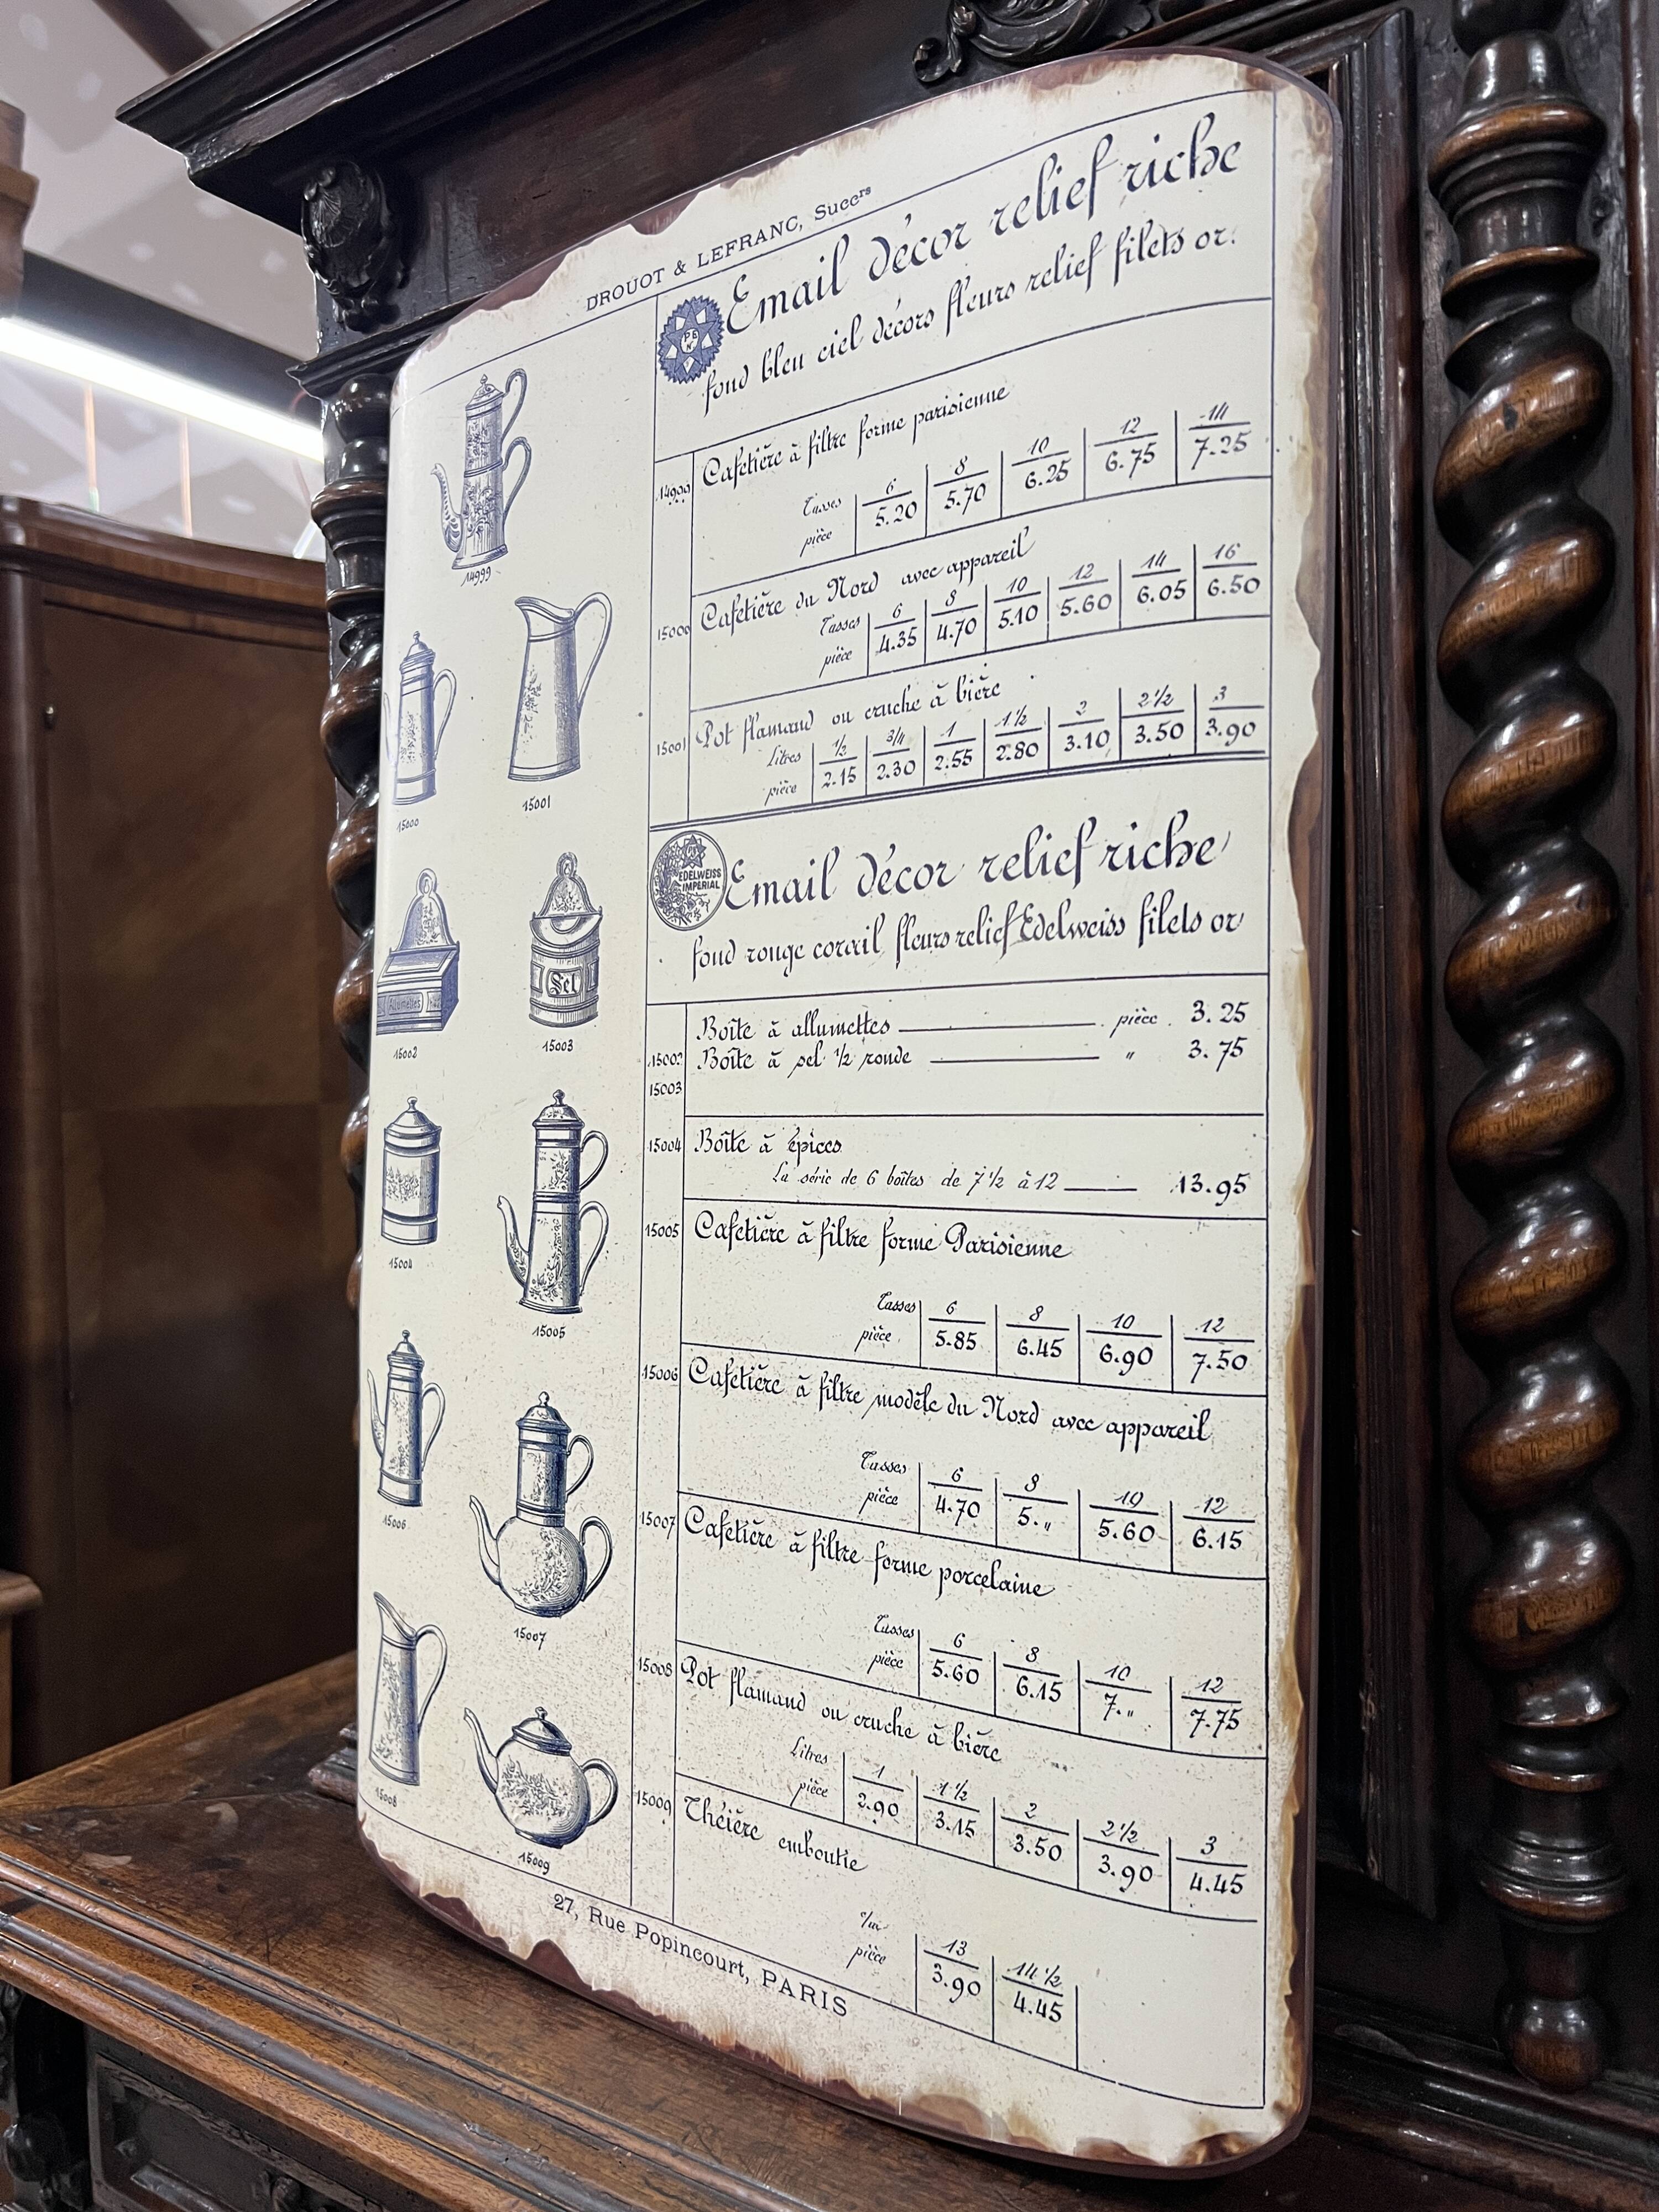 DROUOT & LEFRANC, Succrs
Email décor relief riche
fond bleu ciel décors fleurs relief filets or.
14999 Cafetière à filtre forme parisienne
Tasses 6 8 10 12 14
pièce 5.20 5.70 6.25 6.75 7.25
15000 Cafetière du Nord avec appareil
Tasses 6 8 10 12 14 16
pièce 4.35 4.70 5.10 5.60 6.05 6.50
15001 Pot flamand ou cruche à bière
Litres 1/2 3/4 1 1 1/2 2 2 1/2 3
pièce 2.15 2.30 2.55 2.80 3.10 3.50 3.90
EDELWEISS
IMPERIAL
Email décor relief riche
fond rouge corail fleurs relief Edelweiss filets or
Boîte à allumettes pièce 3.25
15002 Boîte à sel 1/2 ronde " 3.75
15003
15004 Boîte à épices
La série de 6 boîtes de 7 1/2 à 12 13.95
15005 Cafetière à filtre forme Parisienne
Tasses 6 8 10 12
pièce 5.85 6.45 6.90 7.50
15006 Cafetière à filtre modèle du Nord avec appareil
Tasses 6 8 10 12
pièce 4.70 5." 5.60 6.15
15007 Cafetière à filtre forme porcelaine
Tasses 6 8 10 12
pièce 5.60 6.15 7." 7.75
15008 Pot flamand ou cruche à bière
Litres 1 1 1/2 2 2 1/2 3
pièce 2.90 3.15 3.50 3.90 4.45
15009 Théière emboutie
c/m 13 14 1/2
pièce 3.90 4.45
14999
15000
15001
Allumettes
Sel
15002
15003
15004
15005
15006
15007
15008
15009
27, Rue Popincourt, PARIS